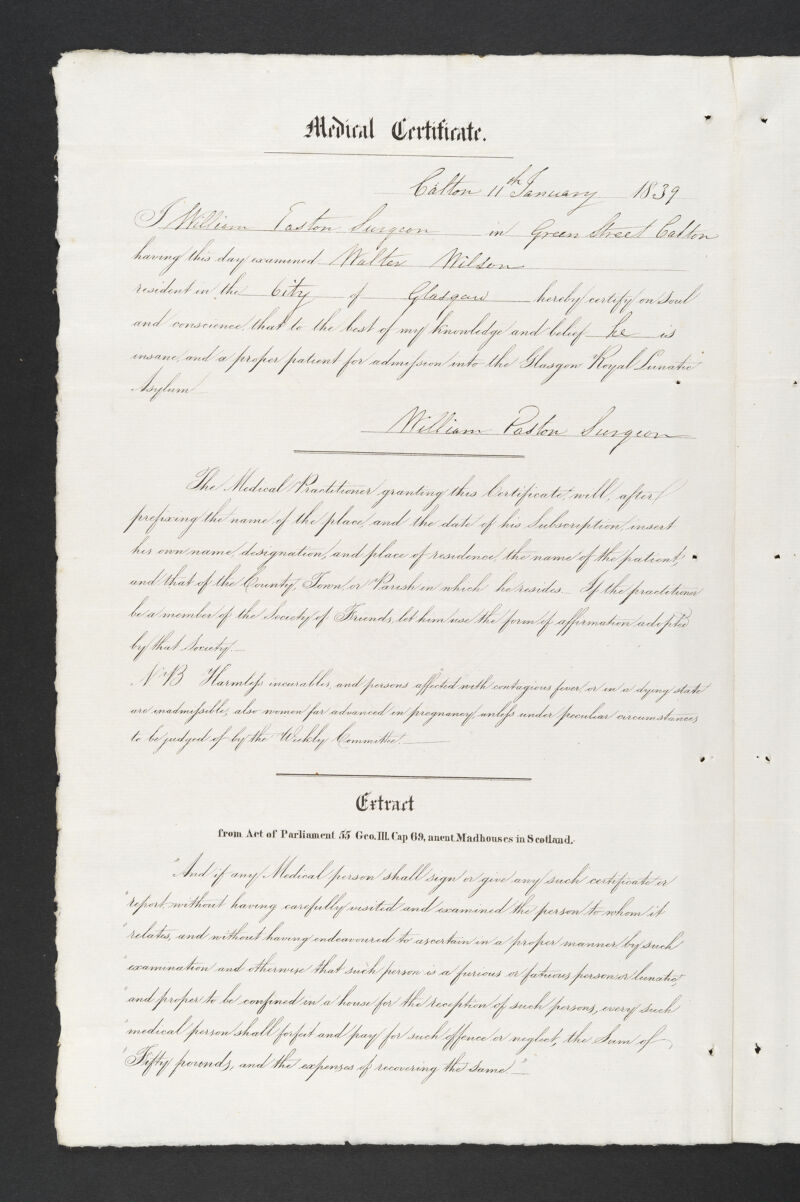 Medical Certificate.
Calton 11th January 1839
I William Easton Surgeon in Green Street Calton
having this day examined Walter Wilson
resident in the City of Glasgow hereby certify on soul
and conscience, that to the best of my knowledge and belief he is
insane, and a proper patient for admission into the Glasgow Royal Lunatic
Asylum
William Easton Surgeon
The Medical Practitioner granting this Certificate, will, after
prefixing the name of the place, and the date of his Subscription, insert
his own name, designation, and place of residence, the name of the patient,
and that of the County, Town, or Parish in which he resides. If the practitioner
be a member of the Society of Friends, let him use the form of affirmation adopted
by that Society.
N.B Harmless incurables, and persons affected with contagious fever, or in a dying state
are inadmissible, also women far advanced in pregnancy, unless under peculiar circumstances,
to be judged of by the Weekly Committee.
Extract
from Act of Parliament 55 Geo. III. Cap 69, anent Madhouses in Scotland.
"And if any Medical person shall sign or give any such certificate or
"report, without having carefully visited and examined the person to whom it
"relates, and without having endeavoured to ascertain in a proper manner by such
"examination and otherwise that such person is a furious or fatuous person or lunatic,
"and proper to be confined in a house for the reception of such persons, every such
"medical person shall forfeit and pay for such offence or neglect, the Sum of
"Fifty pounds, and the expenses of recovering the same."